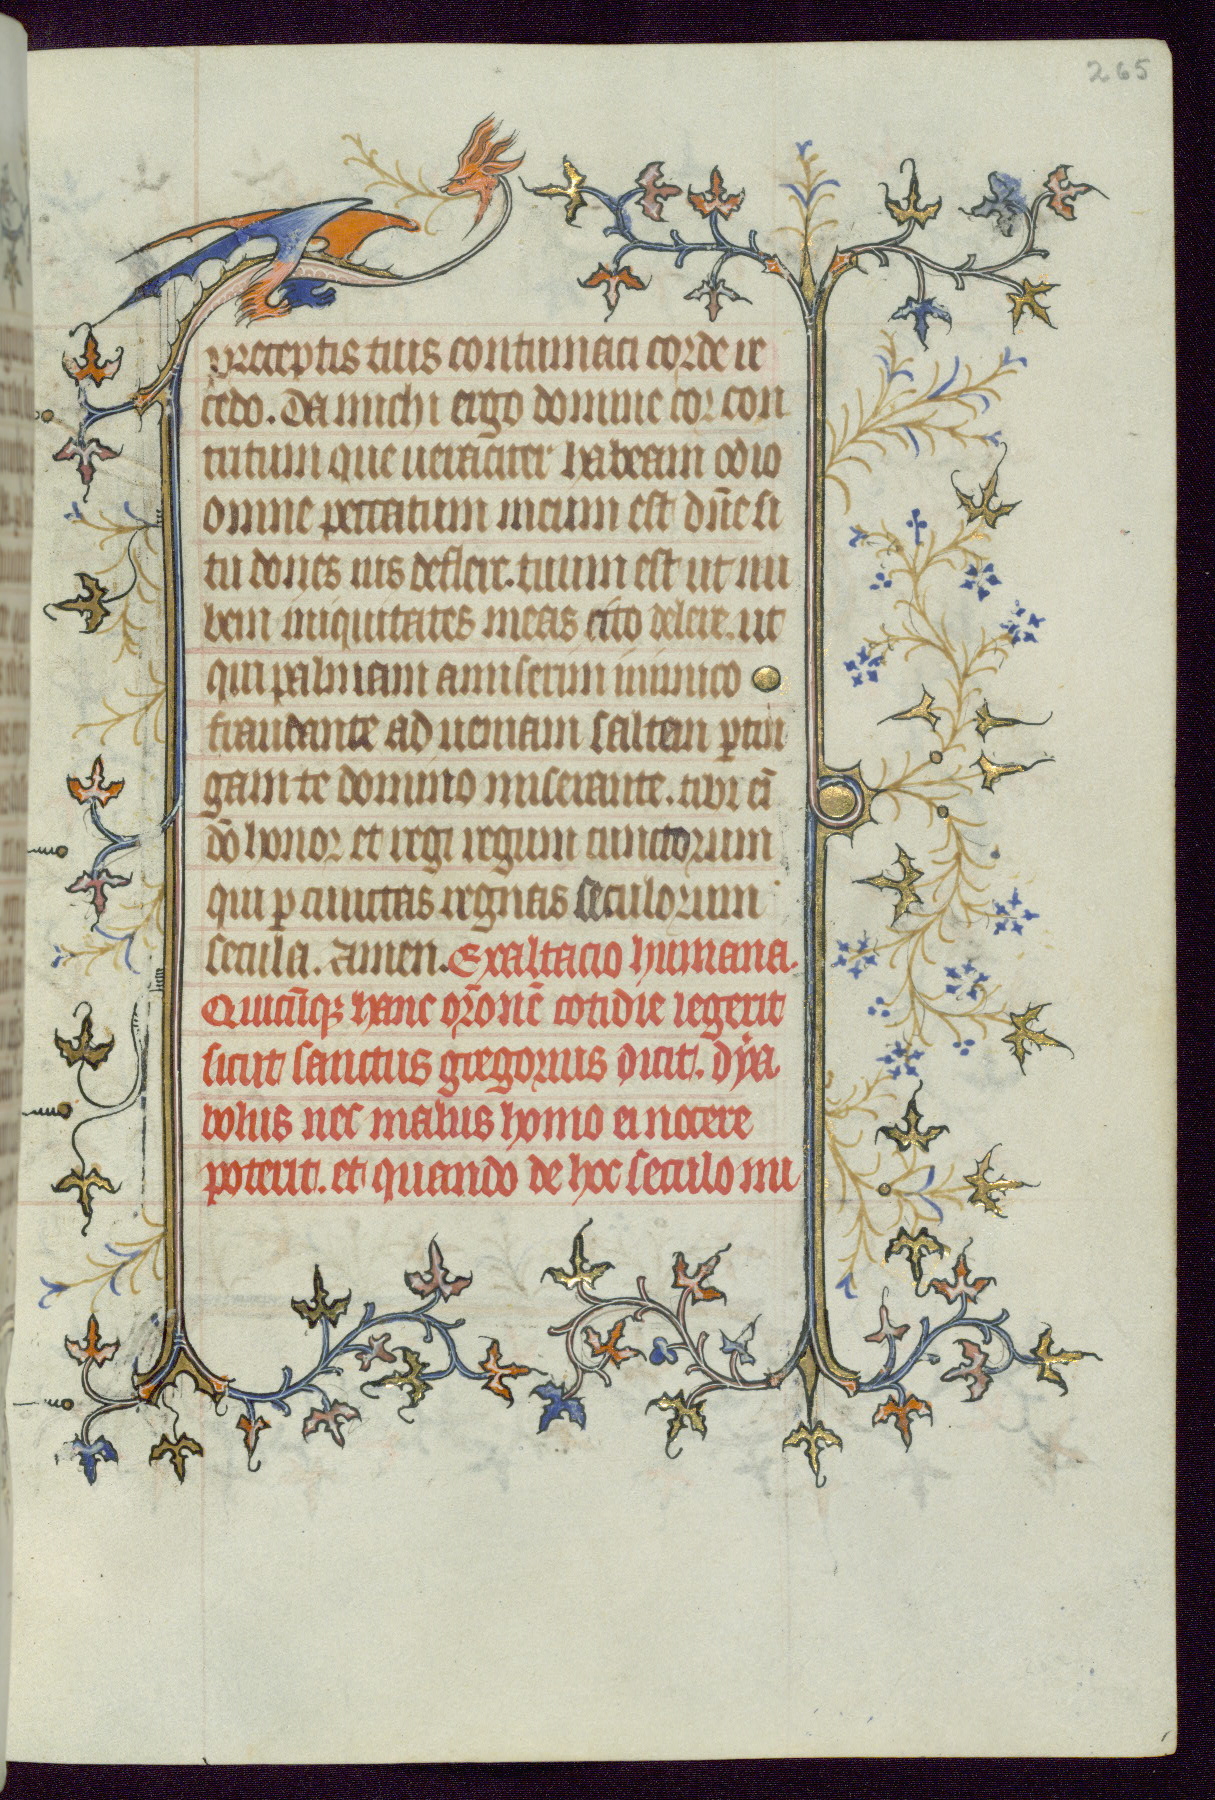 265
preceptis tuis contumaci corde re
cedo. Da michi ergo domine cor con
tritum que ueraciter habeam odio
omne peccatum meum est dn̄e si
tu dones uis deflere. tuum est ut nu
bem iniquitates meas cito delere. ut
qui palmam amiserim inimico
fraudante ad ueniam saltem ꝑtin
gam te domino miserante. tibi ei̅
do̅ honor et regi regum cunctorum
qui ꝑ cunctas regnas seculorum
secula. Amen. Exaltacio humana.
Quicu̅qꝫ hanc oro̅ne̅ cotidie legerit
sicut sanctus gregorius dicit. dẏa
bolus nec malus homo ei nocere
poterit. et quando de hoc seculo mi